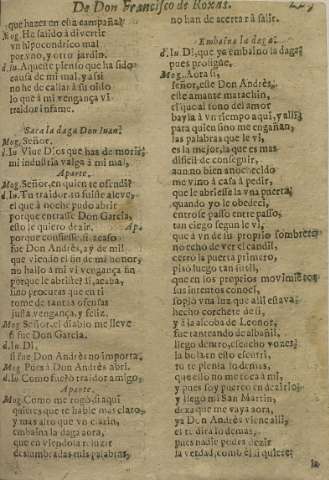 De Don Francisco de Roxas.
que hazes en esta campaña?
Mog. He salido a divertir
vn hipocondrico mal
por vno, y otro jardin.
d.Iu. Aqueste pleito que ha sido
causa de mi mal, y assi
no he de callar à su oido
lo que à mi vengança vi
traidor infame.
Saca la daga Don Iuan.
Mog. Señor.
d.Iu. Viue Dios que has de morir,
mi industria valga à mi mal,
Aparte.
Mog. Señor, en quien te ofendi?
d.Iu. Tu traidor
el que à noche pudo abrir
porque entrasse Don Garcia,
esto le quiero dezir. Ap.
porque confiesse, si acaso
fue Don Andrès, ay de mi!
que viendo el fin de mi honor,
no hallo à mi vengança fin
porque le abriste? si, acaba,
uno procuras que en ti
tome de tantas ofensas
justa vengança, y feliz.
Mog. Señor, el diablo me lleve
si fue Don Garcia.
d.Iu. Di,
si fue Don Andrès no importa.
Mog. Pues à Don Andrès abri.
d.Iu. Como fuerò traidor amigo,
Aparte.
Mog. Como me rogò di aqui
quieres que te hable mas claro,
y mas alto que vn clarin,
embaina la daga aora,
que en viendola reluzir
deslumbradas mis palabras,
no han de acertar à salir.
Embaina la daga.
d.Iu. Di, que ya embaino la daga,
pues prosigue.
Mog. Aora si,
señor, este Don Andrès,
este amante matachin,
el qual al tono del amor
bayla à vn tiempo aqui, y alli,
para quien sino me engañan,
las palabras que le vi,
es la mejor, la que es mas
dificil de conseguir,
aun no bien anochecido
me vino à casa à pedir,
que le abriesse la vna puerta,
quando yo le obedeci,
entrose passo entre passo,
tan ciego segun le vi,
que à vn de su proprio sombrero
no echo de ver el candil,
cerrò la puerta primero,
piso luego tan sutil,
que en los proprios movimientos
sus intentos conoci,
soplò vna luz que alli estava,
hecho corchete de si,
y à la alcoba de Leonor,
fue tanteando de albañil,
llego dentro, escucho vozes,
la bola en esto escurri,
tu te plenia lo demas,
que esso no me toca à mi,
y pues soy puerco en dezirlo,
y llegò mi San Martin,
dexa que me vaya aora,
ya Don Andrès viene alli,
el te dira lo demas,
pues nadie pudes dezir
la verdad, como el si quiere;